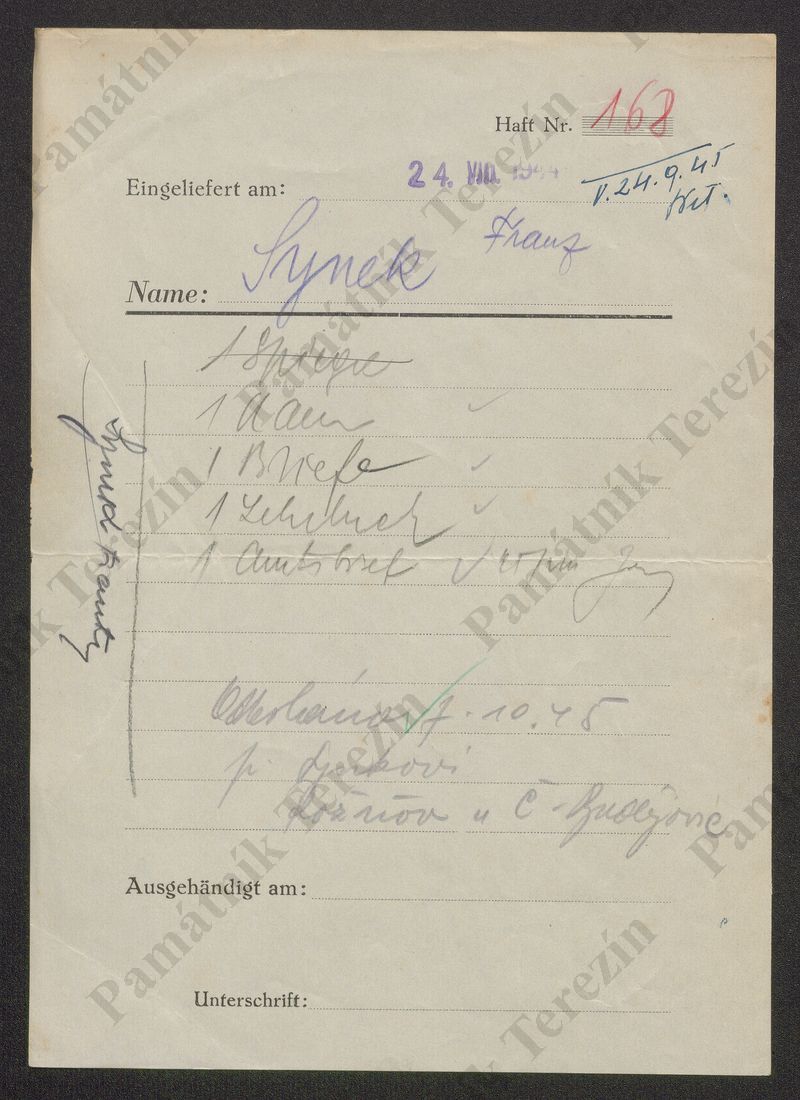 Haft Nr. 168
Eingeliefert am: 24. VIII. 1944
V. 24.9.45
Name: Synek Franz
1 Spiegel
1 Kamm
1 Briefe
1 Lehrbuch
1 Amtsbrief
Odesláno 7.10.45
p. Synkovi
Rožnov u Č. Budějovic
Ausgehändigt am:
Unterschrift:
Památník Terezín